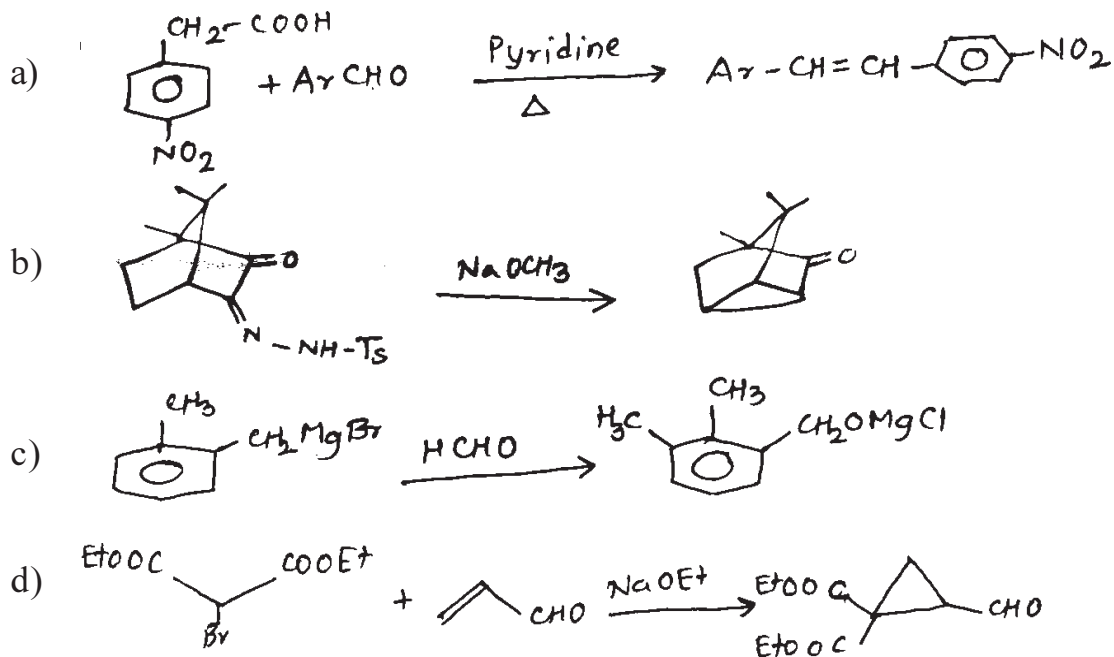 a) CH2-COOH NO2 + ArCHO Pyridine Δ Ar-CH=CH NO2
b) O N-NH-Ts NaOCH3 O
c) CH3 CH2MgBr HCHO H3C CH3 CH2OMgCl
d) EtOOC COOEt Br + CHO NaOEt EtOOC EtOOC CHO